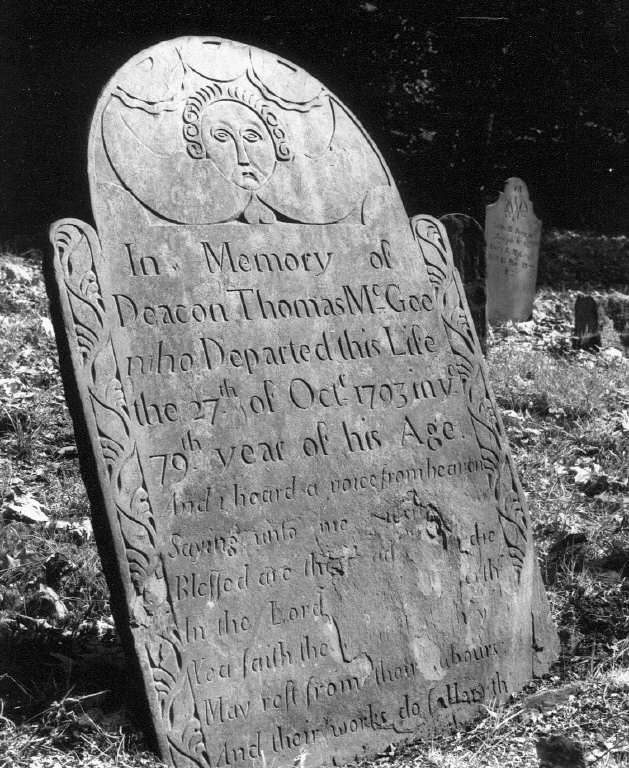 In Memory of
Deacon Thomas Mc. Gee
who Departed this Life
the 27th of Octr. 1793 in ye.
79th year of his Age.
And i heard a voice from heaven
Saying unto me
Blessed are the the
In the Lord
Yea saith the
May rest from their labours
And their works do follow th